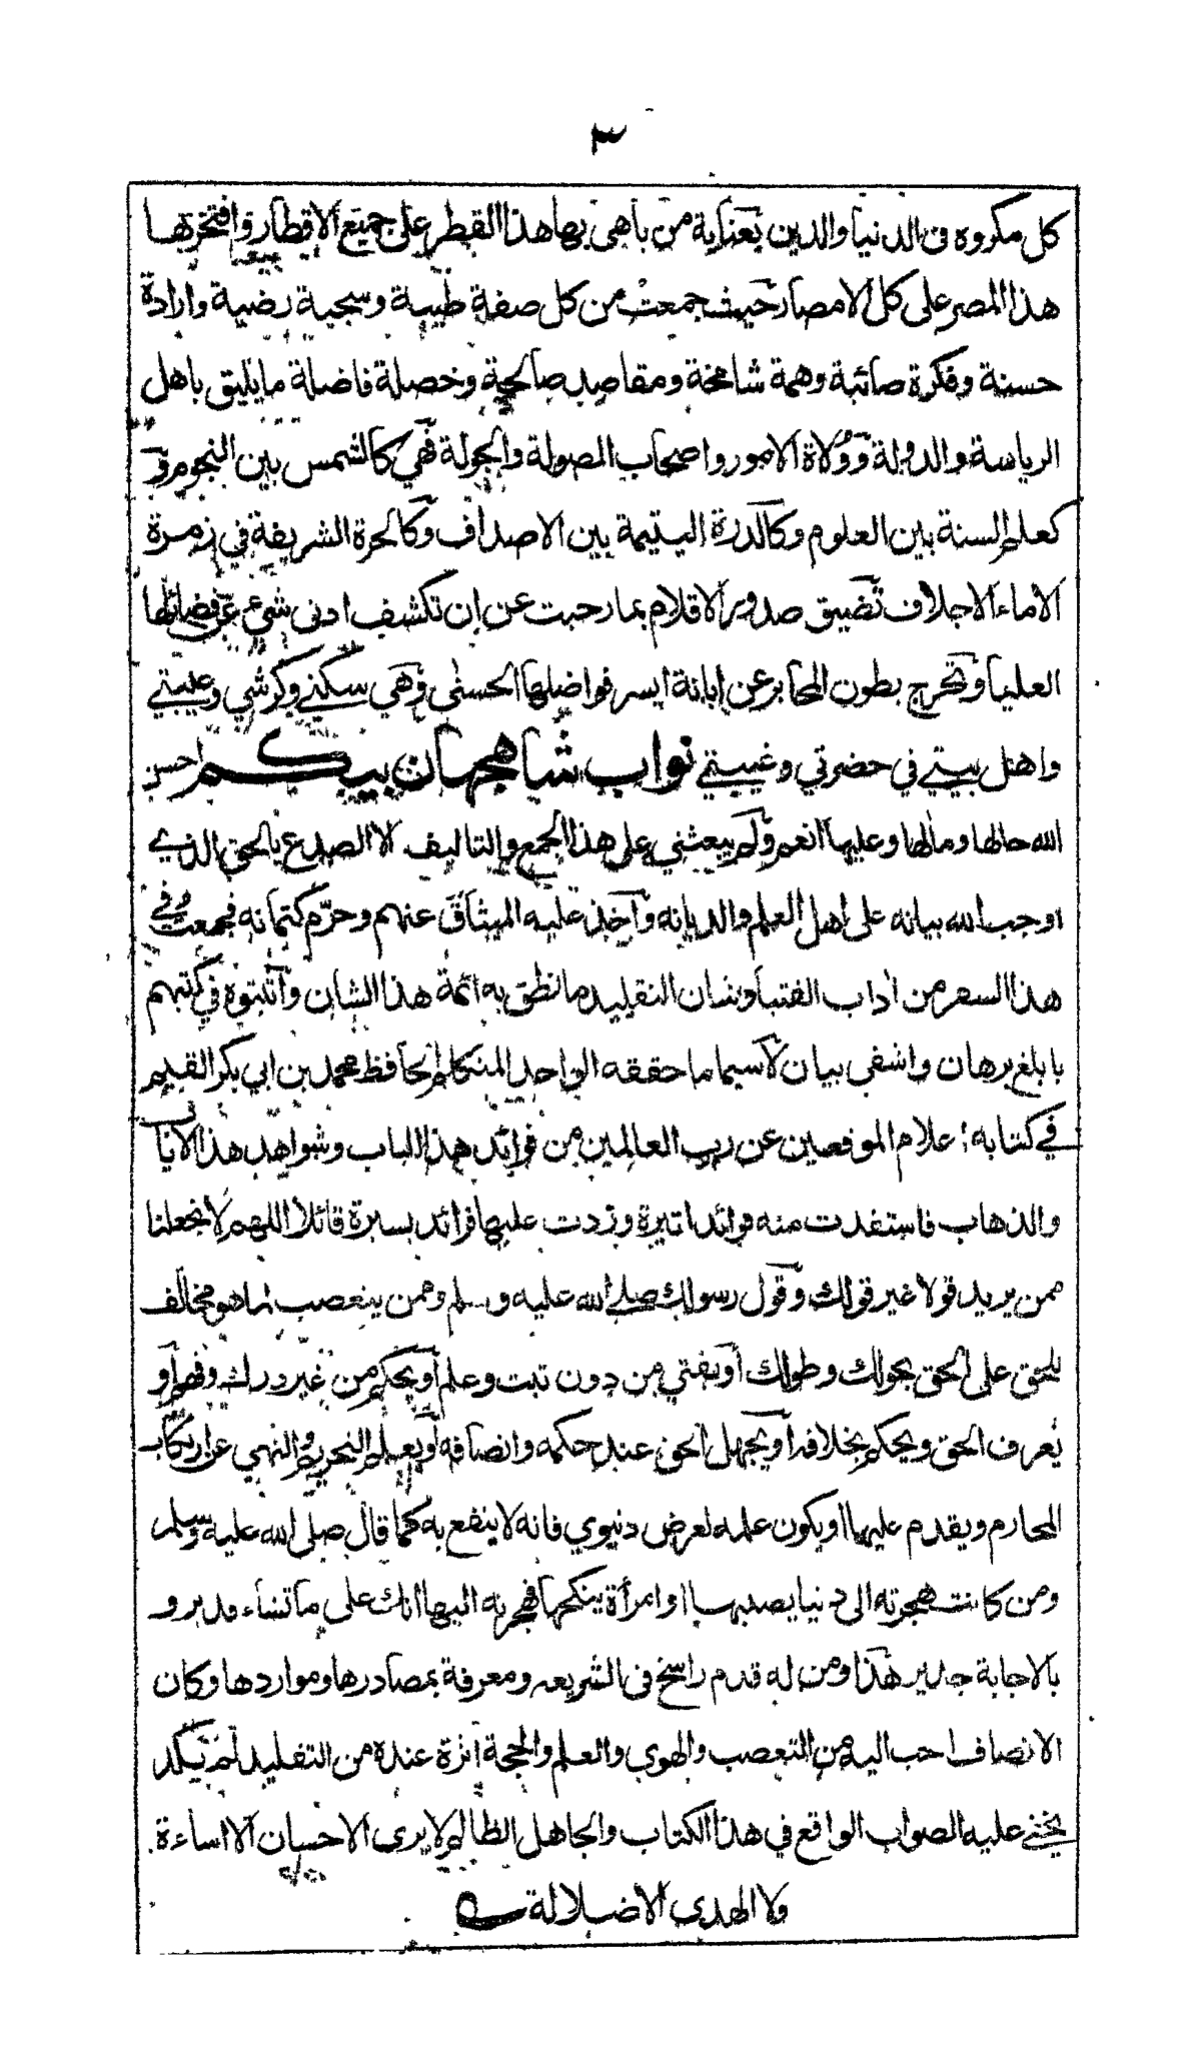 ٣
كل مكروه فى الدنيا والدين بعناية من باهى بها هذا القطر على جميع الاقطار وافتخر بها
هذا المصر على كل الامصار حيث جمعت من كل صفة طيبة وسجية رضية وارادة
حسنة وفكرة صائبة وهمة شامخة ومقاصد صالحة وخصلة فاضلة ما يليق باهل
الرياسة والدولة وولاة الامور واصحاب الصولة والجولة فهي كالشمس بين النجوم و
كعلم السنة بين العلوم وكالدرة اليتيمة بين الاصداف وكالحرة الشريفة في زمرة
الاماء الاجلاف تضيق صدور الاقلام بما رحبت عن ان تكشف ادنى شيء عن فضائلها
العليا وتحرج بطون المحابر عن ابانة ايسر فواضلها الحسنى وهي سكني وكرشي وعيبتي
واهل بيتي في حضرتي وغيبتي نواب شاهجهان بيگم احسن
الله حالها ومالها وعليها انعم ولم يبعثني على هذا الجمع والتاليف الا الصدع بالحق الذي
اوجب الله بيانه على اهل العلم والديانه واخذ عليه الميثاق عنهم وحرم كتمانه فجمعت في
هذا السفر من اداب الفتيا وبنيان التقليد ما نطق به ائمة هذا الشان واثبتوه في كتبهم
بابلغ برهان واشفى بيان لاسيما ما حققه الواحد المتكلم الحافظ محمد بن ابي بكر القيم
في كتابه اعلام الموقعين عن رب العالمين من فوائد هذا الباب وشواهد هذا الاياب
والذهاب فاستفدت منه فوائد اثيرة وزدت عليها فرائد يسيرة قائلا اللهم لا تجعلنا
ممن يريد قولا غير قولك وقول رسولك صلى الله عليه وسلم وممن يتعصب لما هو مخالف
للحق على الحق بحولك وطولك او يفتي من دون تبت وعلم او يحكم من غير درك وفهم او
يعرف الحق ويحكم بخلافه او يجهل الحق عند حكمه وانصافه او يعلم التحريم والنهي عن ارتكاب
المحارم ويقدم عليها او يكون علمه لعرض دنيوي فانه لا ينفع به كما قال صلى الله عليه وسلم
ومن كانت هجرته الى دنيا يصيبها او امرأة ينكحها فهجرته اليها انك على ما تشاء قدير و
بالاجابة جدير هذا ومن له قدم راسخ فى الشريعه ومعرفة بمصادرها ومواردها وكان
الانصاف احب اليه من التعصب والهوى والعلم والحجة اثرة عنده من التقليد لم يكد
يخفى عليه الصواب الواقع في هذا الكتاب والجاهل الظالم لا يرى الاحسان الا اساءة
ولا الهدى الا ضلالة